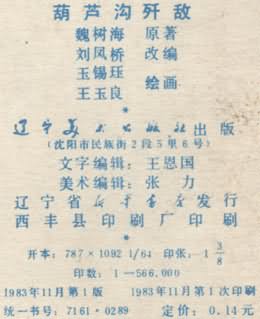 葫芦沟歼敌
魏树海 原著
刘凤桥 改编
玉锡珏
王玉良 绘画
辽宁美术出版社出版
(沈阳市民族街2段5里6号)
文字编辑：王恩国
美术编辑：张 力
辽宁省新华书店发行
西丰县印刷厂印刷
开本：787×1092 1/64 印张：1 3/8
印数：1—566.000
1983年11月第1版 1983年11月第1次印刷
统一书号：7161·0289 定价：0.14元